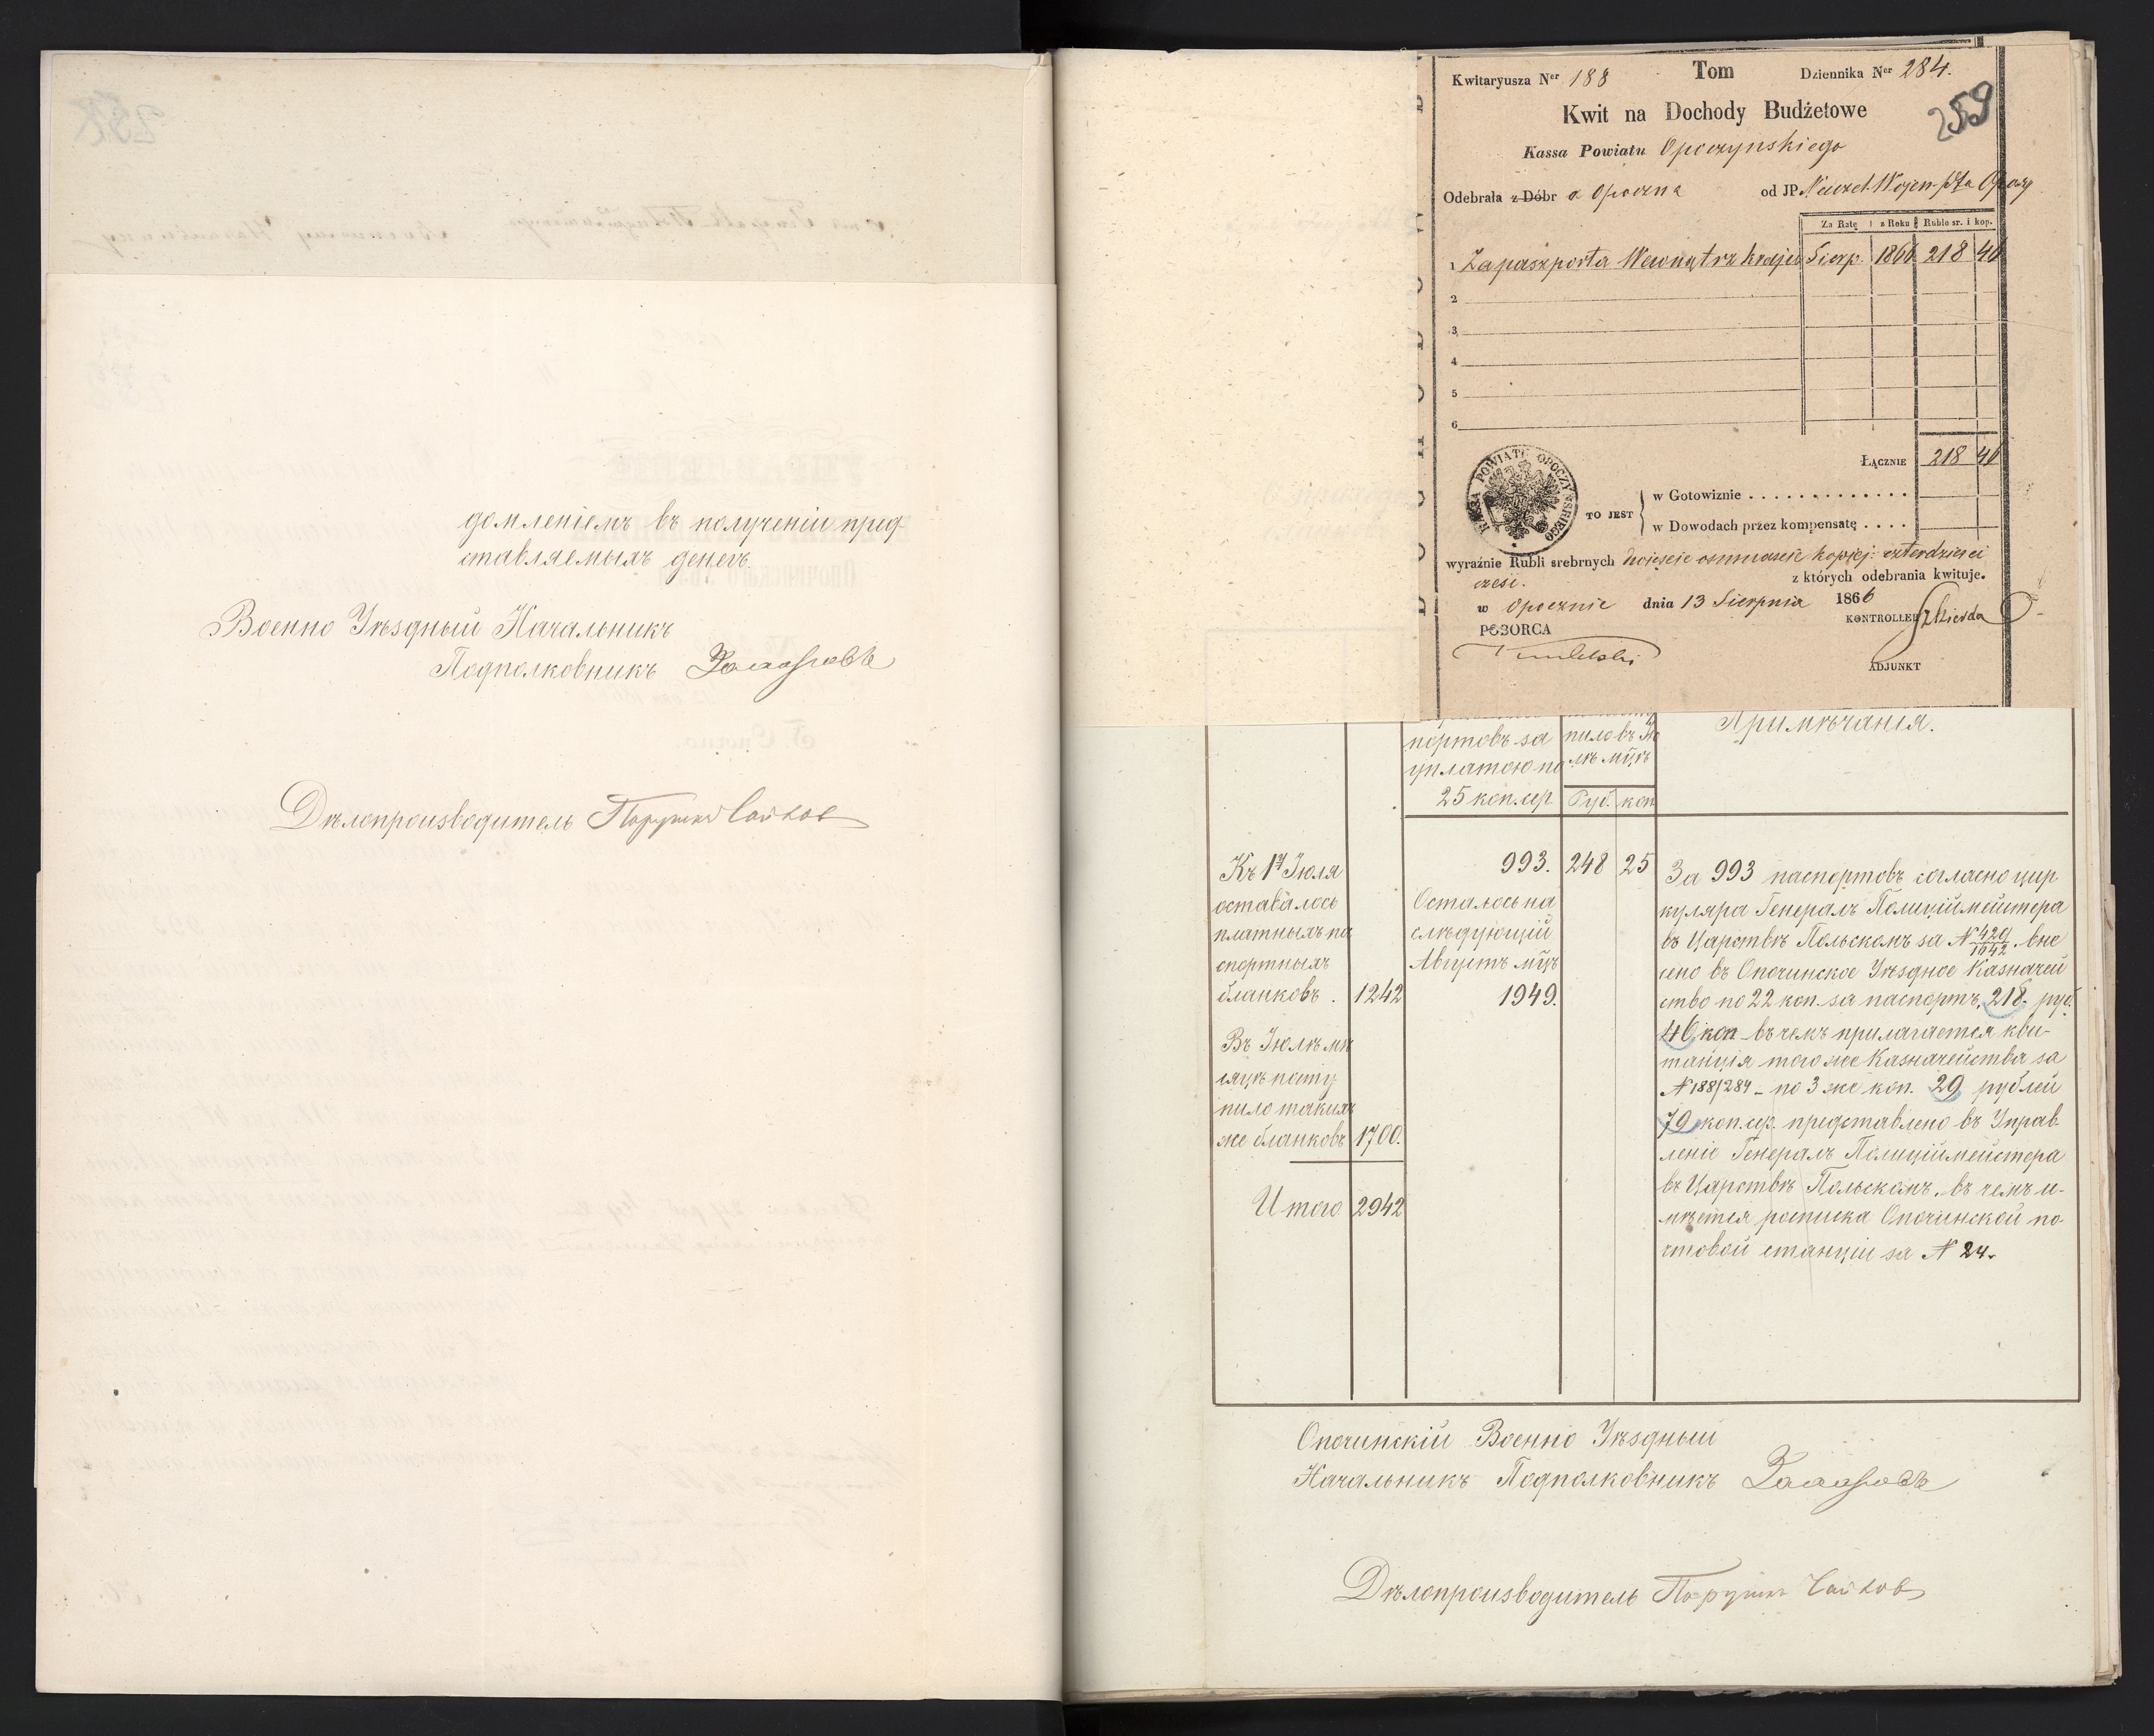 домленіемъ въ полученіи пред-
ставляемыхъ денегъ.
Военно Уѣздный Начальникъ
Подполковникъ
Дѣлопроизводитель Поручикъ
Kwitaryusza Ner 188 Tom Dziennika Ner 284.
259
Kwit na Dochody Budżetowe
Kassa Powiatu Opoczynskiego
Odebrała z Dóbr z Opoczna od JP. Naczel. Wojen. Ptu Opocz
Za Ratę z Roku Ruble sr. i kop.
1 Za paszporta Wewnątrz kraju Sierp. 1866 218 46
2
3
4
5
6
ŁĄCZNIE 218 46
KASSA POWIATU OPOCZYŃSKIEGO
TO JEST
w Gotowiznie . . . . . . . . . . . . .
w Dowodach przez kompensatę . . . .
wyraźnie Rubli srebrnych dwieście osmnaście kopiej: czterdzieści
sześć. z których odebrania kwituje.
w Opocznie dnia 13 Sierpnia 1866
KONTROLLER
POBORCA
ADJUNKT
портовъ за
уплатою по
25 коп. сер.
пило въ Ію
лѣ мцѣ
Руб. коп
Примѣчанія.
Къ 1му Іюля
оставалось
платныхъ па
спортныхъ
бланковъ . 1242
Въ Іюлѣ мѣ
сяцѣ посту
пило такихъ
же бланковъ 1700.
Итого 2942
993. 248 25
Осталось на
слѣдующій
Августъ мцъ
1949.
За 993 паспортовъ согласно цир
куляра Генералъ Полиціймейстера
въ Царствѣ Польскомъ за № 420/1642 вне
сено въ Опочинское Уѣздное Казначей
ство по 22 коп. за паспортъ, 218. руб.
46 коп въ чемъ прилагается кви-
танція того же Казначейства за
№ 188/284 - по 3 же коп. 29 рублей
79 коп. сер. представлено въ Управ
леніе Генералъ Полиціймейстера
въ Царствѣ Польскомъ, въ чемъ и-
мѣется росписка Опочинской по
чтовой станціи за № 24.
Опочинскій Военно Уѣздный
Начальникъ Подполковникъ
Дѣлопроизводитель Поручикъ